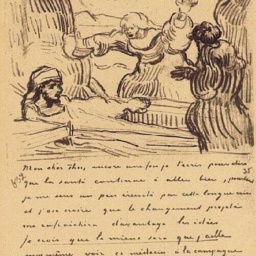 Mon cher Theo, encore une fois je t'écris pour dire
que la santé continue à aller bien, pourtant
je me sens un peu éreinté par cette longue crise
et j'ose croire que le changement projeté
me rafraichira davantage les idées
Je crois que le mieux sera que j'aille
moi même voir ce médecin à la campagne